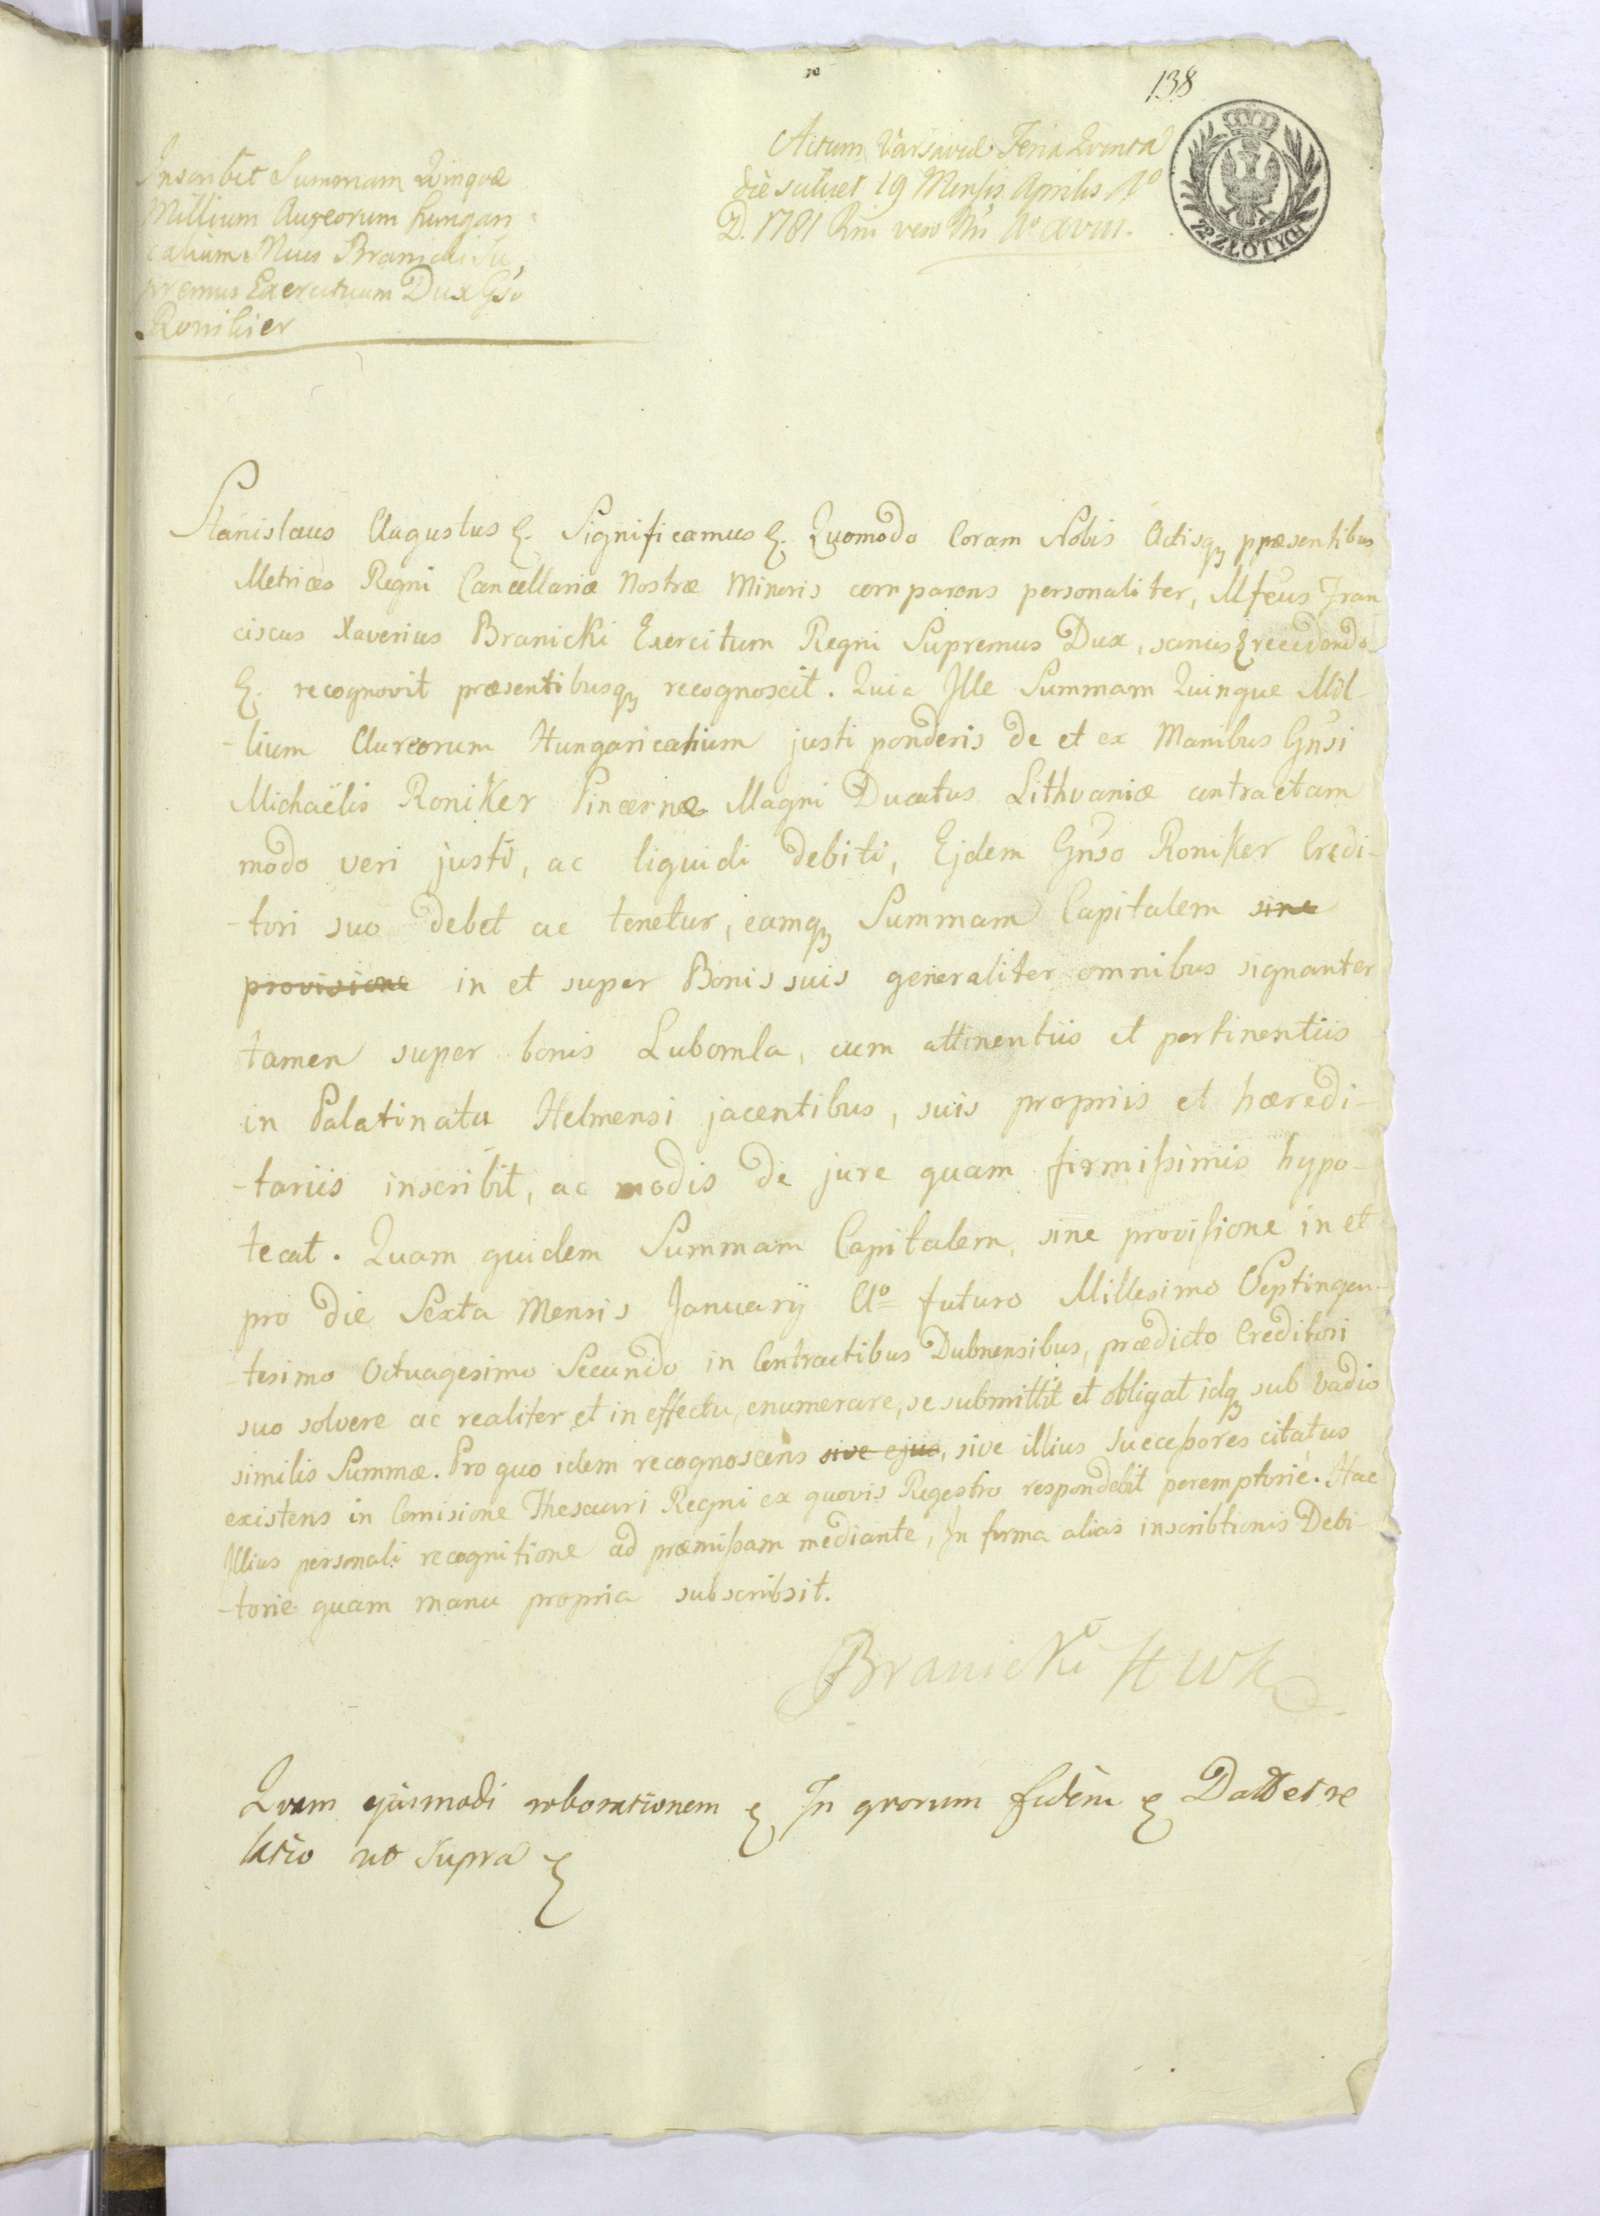 138
12. ZŁOTYCH
Actum Varsaviæ Feria Qvinta
die scilicet 19 Mensis Aprilis Ao
D. 1781 Rni vero Nri Ao XVII.
Inscribit Summam Qvinqvæ
Millium Aureorum hungari-
calium Mcus Branicki Su
premus Exercituum Dux Gso
Ronikier
Stanislaus Augustus &. Significamus &. Quomodo Coram Nobis Actisq præsentibus
Metrices Regni Cancellariæ Nostræ Minoris comparens personaliter, Mfeus Fran
ciscus Xaverius Branicki Exercitum Regni Supremus Dux, sanus & recedendo
&. recognovit præsentibusq recognoscit. Quia Ille Summam Quinque Mil-
-lium Aureorum Hungaricalium justi ponderis de et ex Manibus Gnsi
Michaëlis Roniker Pincernæ Magni Ducatus Lithvaniæ contractam
modo veri justi, ac liquidi debiti, Ejdem Gnso Roniker Credi-
-tori suo debet ac tenetur, eamq Summam Capitalem sine
provisione in et super Bonis suis generaliter omnibus signanter
tamen super bonis Lubomla, cum attinentiis et pertinentiis
in Palatinatu Helmensi jacentibus, suis propriis et hæredi-
-tariis inscribit, ac modis de jure quam firmissimis hypo-
tecat. Quam quidem Summam Capitalem, sine provisione in et
pro die Sexta Mensis Januarij Ao futuro Millesimo Septingen-
-tesimo Octuagesimo Secundo in Contractibus Dubnensibus, prædicto Creditori
suo solvere ac realiter et in effectu, enumerare, se submittit et obligat idq sub vadio
similis Summæ. Pro quo idem recognoscens sive ejus, sive illius Successores citatus
existens in Comisione Thesauri Regni ex quovis Regestro respondebit peremptorie. Hac
Illius personali recognitione ad præmissam mediante, In forma alias inscribtionis Debi-
-torie quam manu propria subscribsit.
Branicki HWK
Qvam ejusmodi roborationem & In qvorum fidem & Datt et re
latio ut supra &